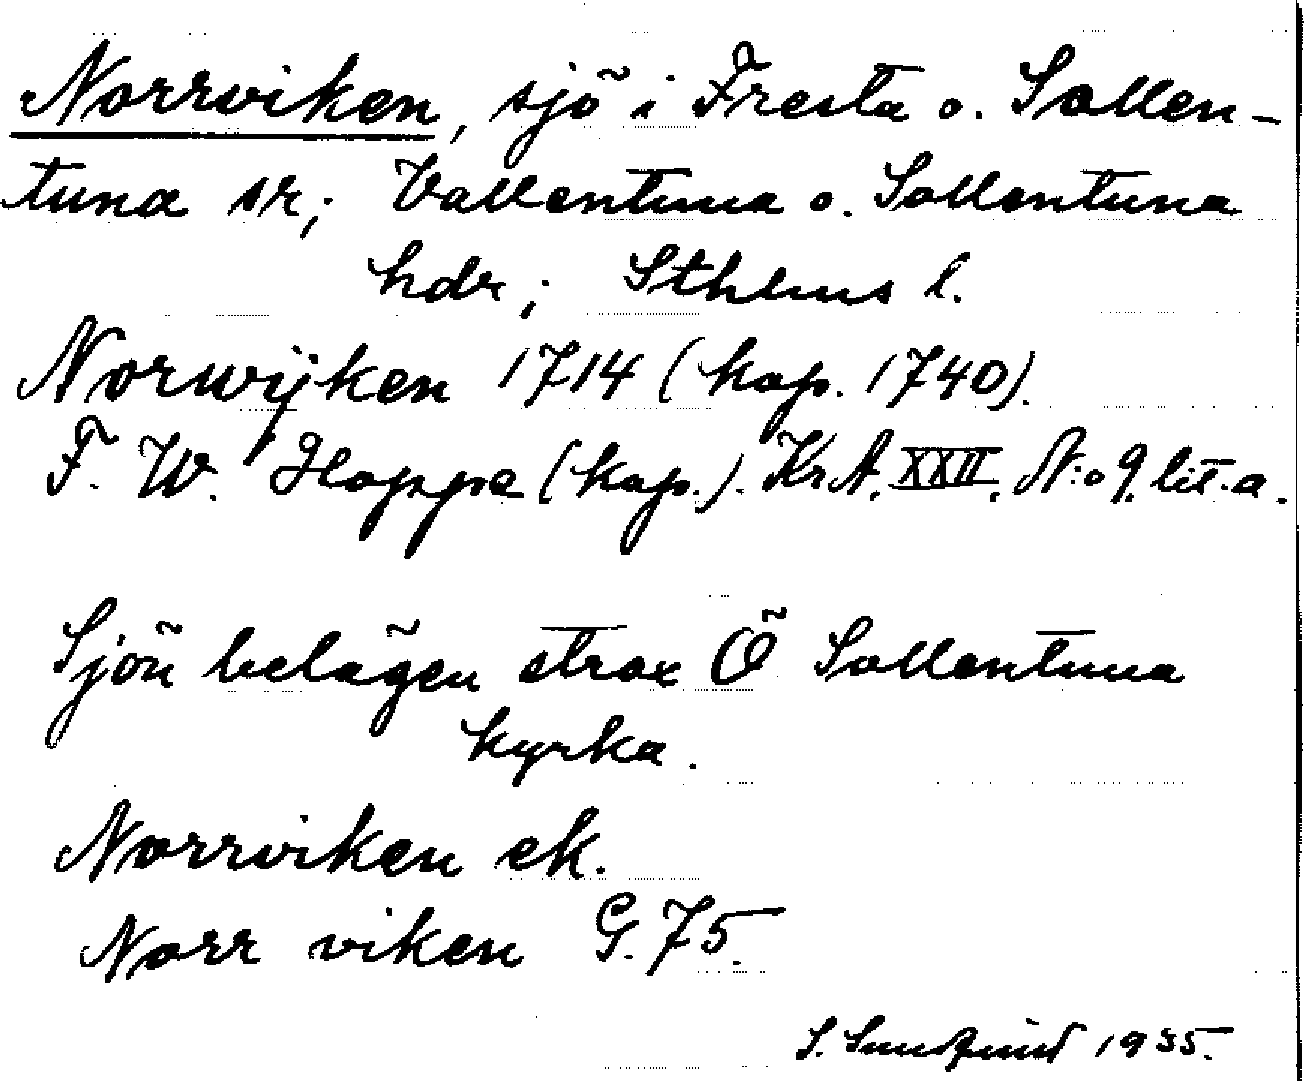 Norrviken, sjö i Fresta o. Sollen-
tuna sr; Vallentuna o. Sollentuna
hdr; Sthlms l.
Norwijken 1714 (kop. 1740).
F. W. Hoppe (kop.). KrA. XXII. N:o 9. lit. a.
Sjön belägen strax Ö Sollentuna
kyrka.
Norrviken ek.
Norr viken G. 75.
S. 1935.